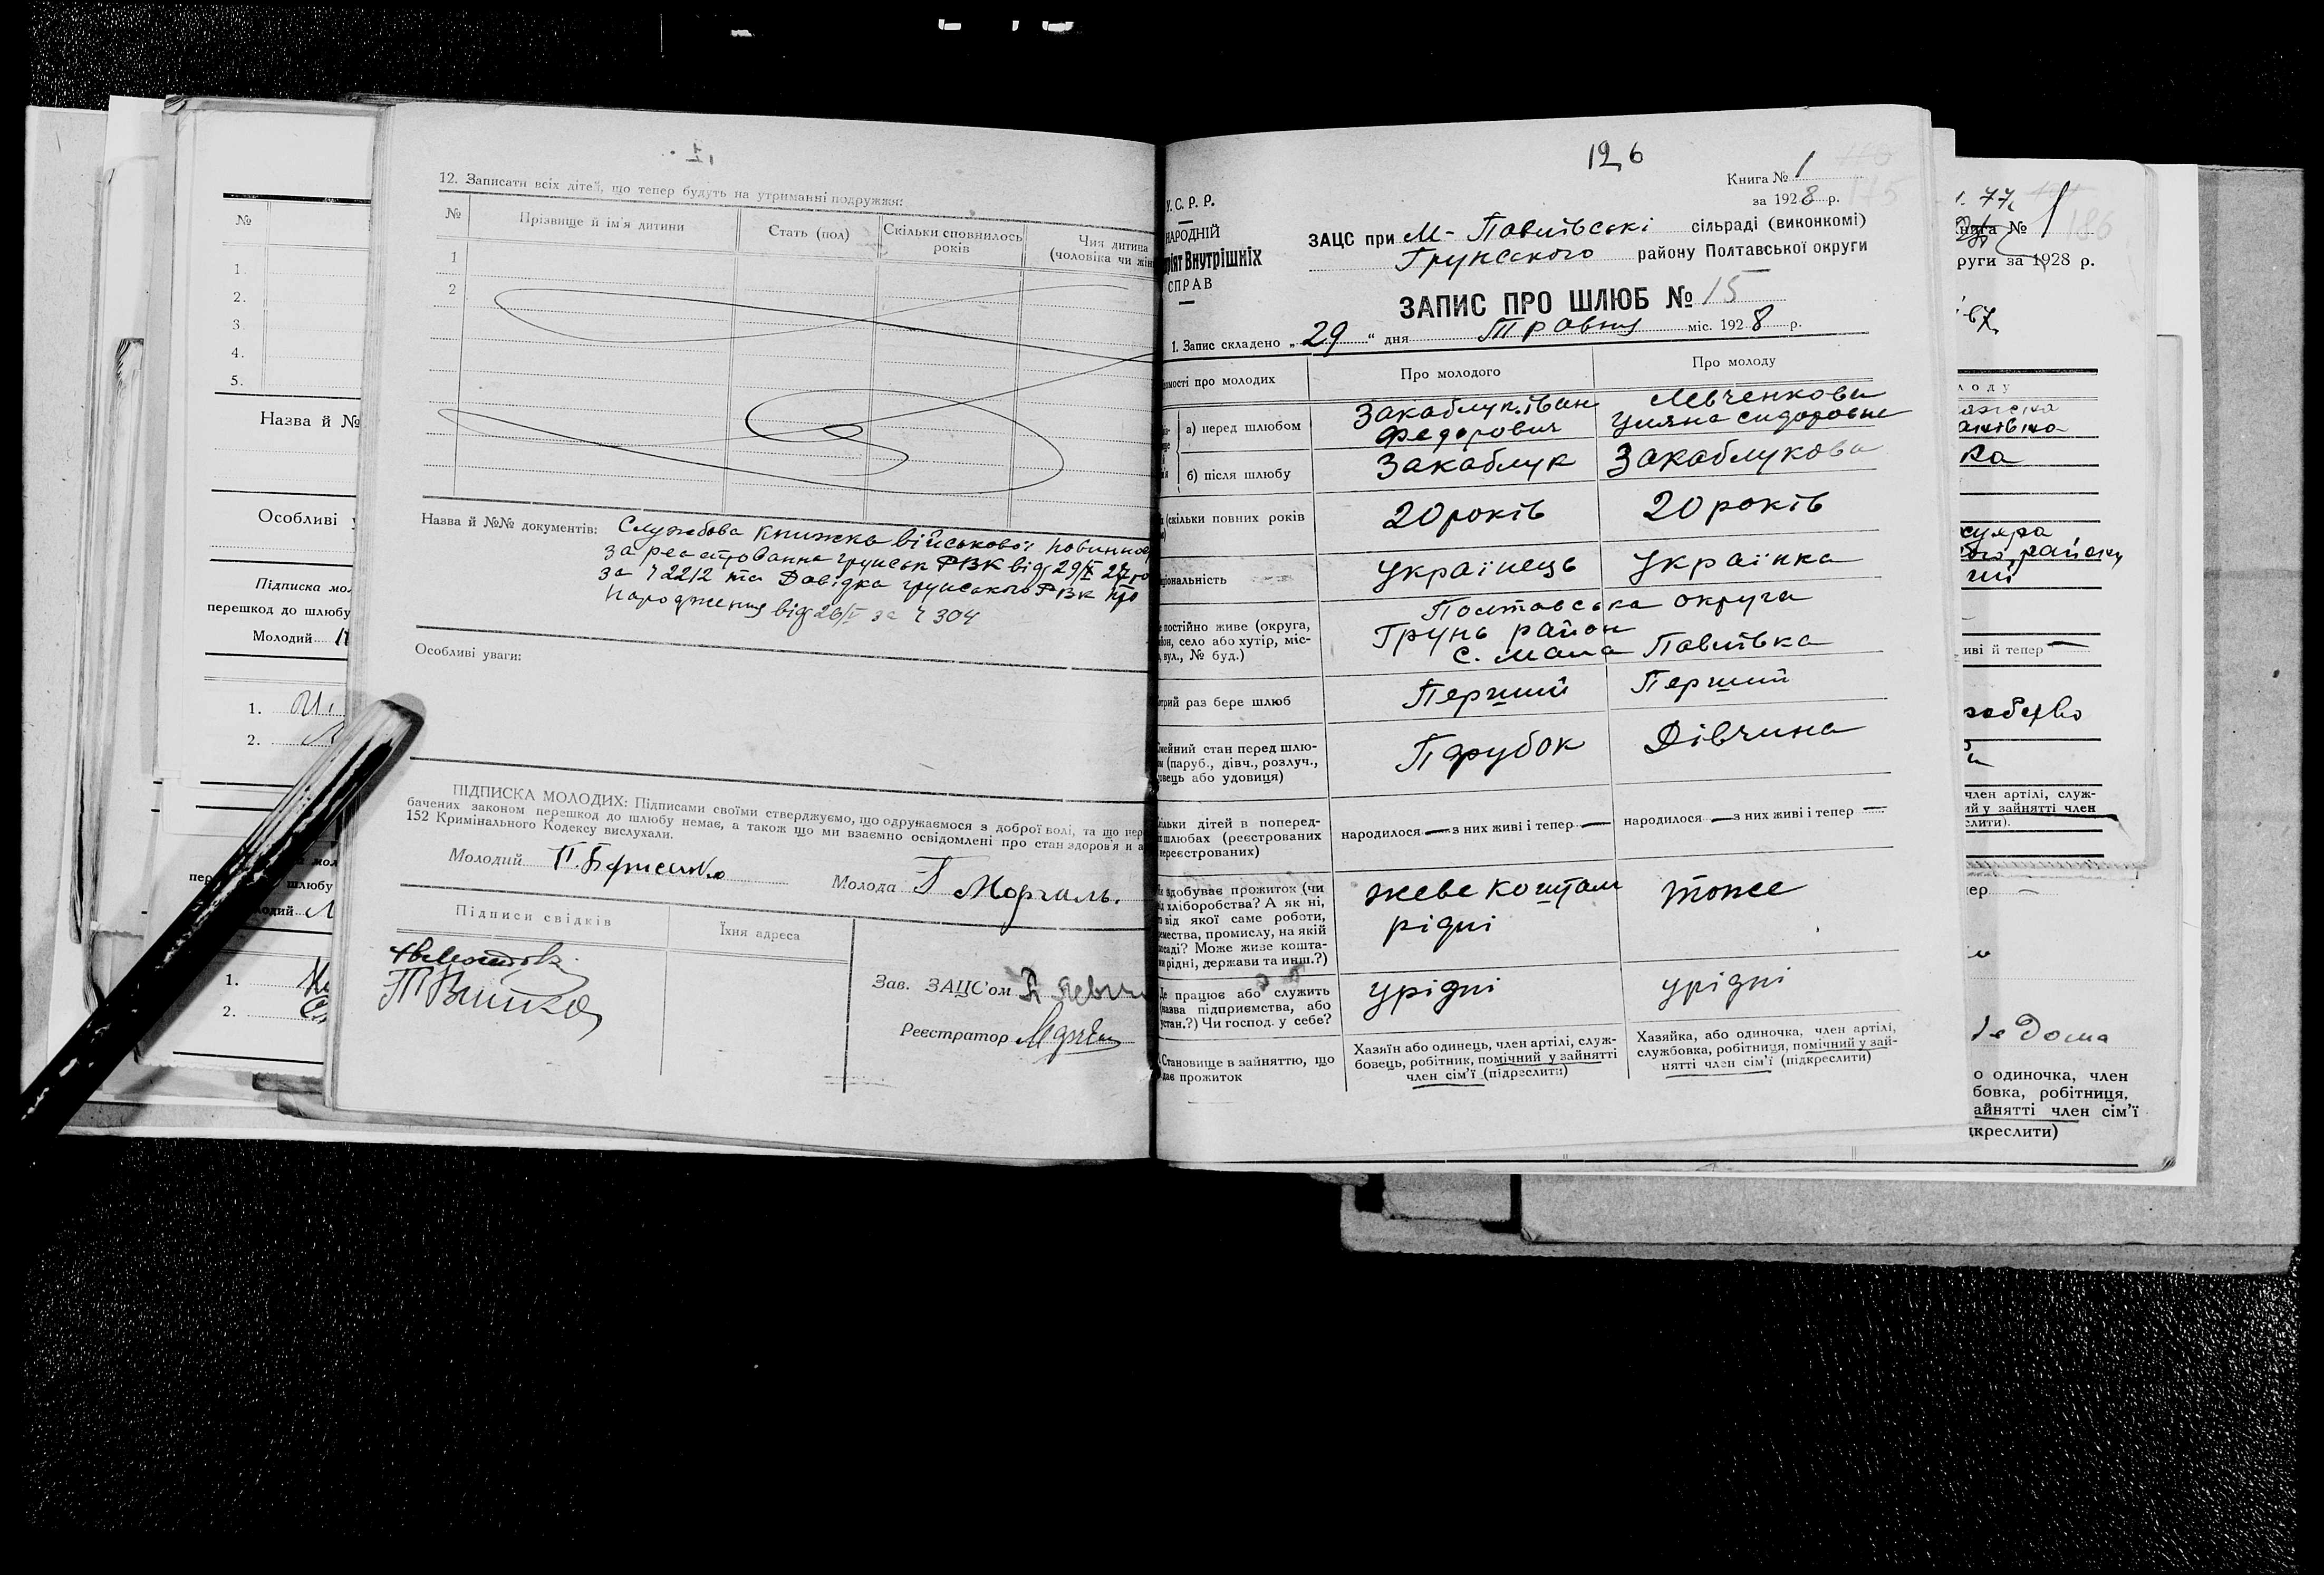 12. Записати всіх дітей, що тепер будуть на утриманні подружжя:
№ Прізвище й ім'я дитини Стать (пол) Скільки сповнилось років Чия дитина (чоловіка чи жін
1
2
Назва й №№ документів: Службова книжка військової повинно
за реєстрованна грунськ РВК від 29/X 27 ро
за ч 2212 та Довідка грунського РВК про
народження від 26/V за ч 304
Особливі уваги:
ПІДПИСКА МОЛОДИХ: Підписами своїми стверджуємо, що одружаємося з доброї волі, та що пер
бачених законом перешкод до шлюбу немає, а також що ми взаємно освідомлені про стан здоров'я и а
152 Кримінального Кодексу вислухали.
Молодий П. Борисенко Молода Г Моргаль.
Підписи свідків Їхня адреса
Зав. ЗАЦС'ом
Реєстратор
126
Книга № 1
за 1928 р.
175
У.С.Р.Р.
НАРОДНІЙ
ріят Внутрішніх
СПРАВ
ЗАЦС при М-Павлівські сільраді (виконкомі)
Грунського району Полтавської округи
ЗАПИС ПРО ШЛЮБ № 15
1. Запис складено „29“ дня Травня міс. 1928 р.
омості про молодих Про молодого Про молоду
а) перед шлюбом Закаблук Іван Федорович Левченкова Уляна Сидоровне
б) після шлюбу Закаблук Закаблукова
(скільки повних років 20 років 20 років
ціональність Українець Українка
е постійно живе (округа,
йон, село або хутір, міс-
, вул., № буд.)
Полтавська округа
Грунь район
с. Мала Павлівка
отрий раз бере шлюб Перший Перший
імейний стан перед шлю-
ом (паруб., дівч., розлуч.,
овець або удовиця)
Парубок Дівчина
кільки дітей в поперед-
шлюбах (реєстрованих
нереєстрованих)
народилося — з них живі і тепер — народилося — з них живі і тепер —
м здобуває прожиток (чи
хліборобства? А як ні,
о від якої саме роботи,
емества, промислу, на якій
осаді? Може живе кошта-
и рідні, держави та инш.?)
жеве коштам рідні тоже
Де працює або служить
(назва підприємства, або
устан.?) Чи господ. у себе?
урідні урідні
Становище в зайняттю, що
дає прожиток
Хазяїн або одинець, член артілі, служ-
бовець, робітник, помічний у зайнятті
член сім'ї (підкреслити)
Хазяйка, або одиночка, член артілі,
службовка, робітниця, помічний у зай-
нятті член сім'ї (підкреслити)
№
1.
2.
3
4.
5.
Назва й №
Особливі у
Підписка мол
перешкод до шлюбу
Молодий
1.
2.
шлюбу
1.
2.
Книга № 1
186
руги за 1928 р.
лоду
ка
район
иві й тепер —
член артілі, служ-
ий у зайнятті член
слити).
пер —
Дома
о одиночка, член
бовка, робітниця,
айнятті член сім'ї
ідкреслити)